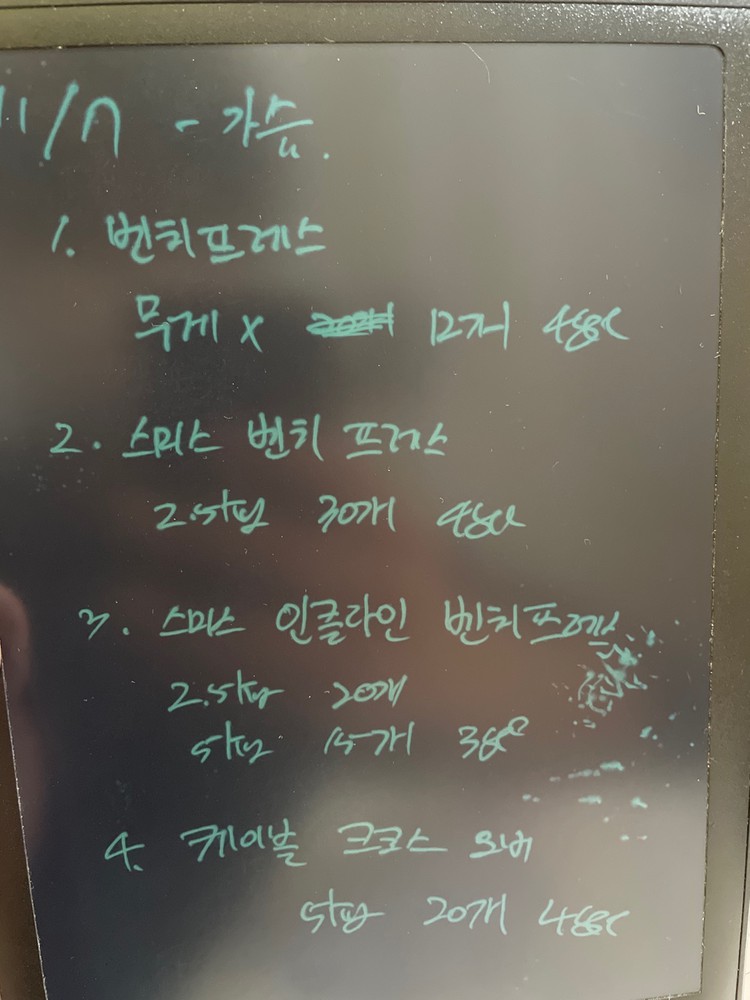 11/17 - 가슴.
1. 벤치프레스
무게 X 12개 4set
2. 스미스 벤치 프레스
2.5kg 30개 4set
3. 스미스 인클라인 벤치프레스
2.5kg 20개
5kg 15개 3set
4. 케이블 크로스 오버
5kg 20개 4set